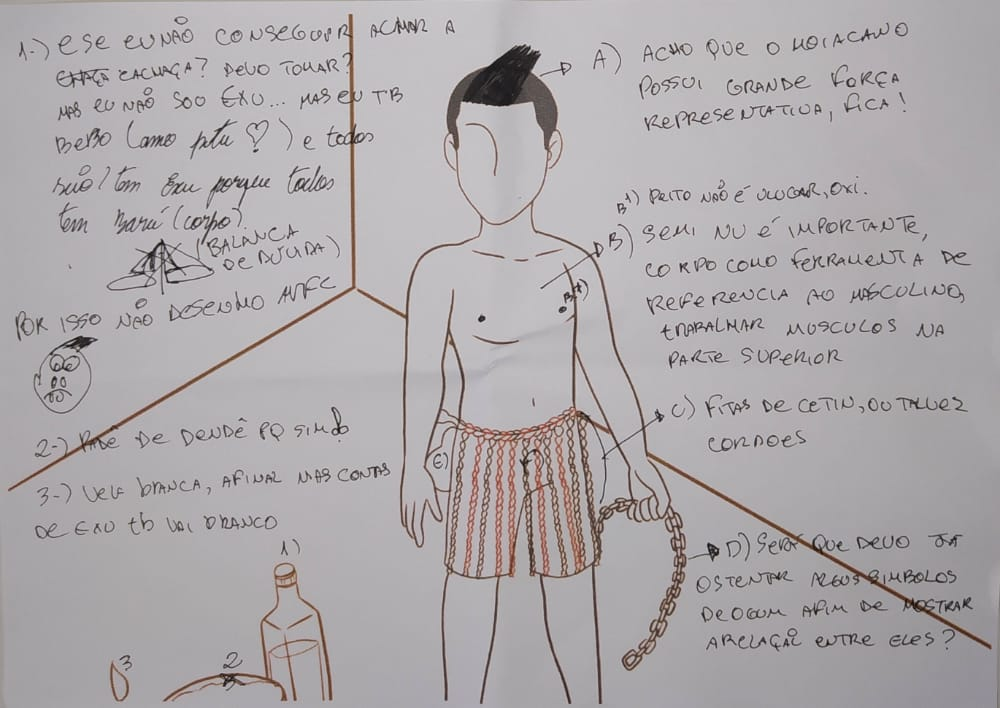 1-) E SE EU NÃO CONSEGUIR ACHAR A
CACHAÇA? DEVO TOMAR?
MAS EU NÃO SOU EXU... MAS EU TB
BEBO (amo pitu ♡) e todos
são/tem Exu porque todos
tem Bará (corpo).
(BALANÇA
DE DUVIDA)
POR ISSO NÃO DESENHO ANTES
2-) PADÊ DE DENDÊ PQ SIM!
3-) VELA BRANCA, AFINAL NAS CONTAS
DE EXU tb VAI BRANCO
1)
2
3
A) ACHO QUE O MOIACANO
POSSUI GRANDE FORÇA
REPRESENTATIVA, FICA!
B¹) PEITO NÃO É VULGAR, OXI.
B) SEMI NU É IMPORTANTE,
CORPO COMO FERRAMENTA DE
REFERENCIA AO MASCULINO,
TRABALHAR MUSCULOS NA
PARTE SUPERIOR
C) FITAS DE CETIN, OU TALVEZ
CORDOES
E)
D) SERÁ QUE DEVO JA
OSTENTAR ALGUS SIMBOLOS
DE OGUM AFIM DE MOSTRAR
A RELAÇÃO ENTRE ELES?